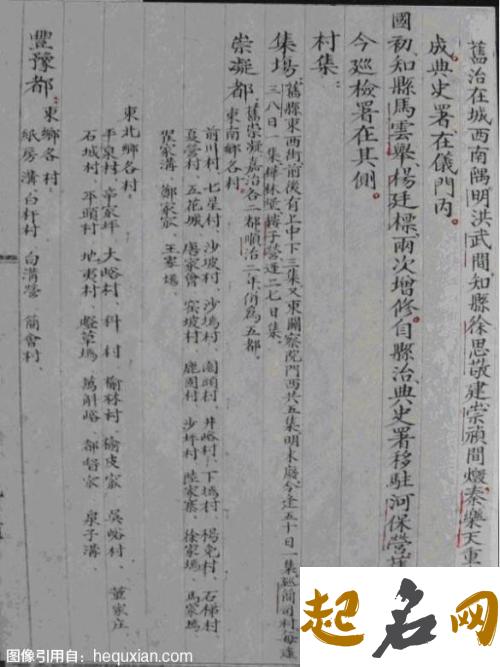 舊治在城西南隅明洪武間知縣徐思敬建崇禎間燬秦樂天重
成典史署在儀門内
國初知縣馬雲舉楊廷標兩次增修自縣治典史署移駐河保營
今巡檢署在其側
村集：
集場：舊縣東西街前後有上中下三集又東關察院門西共五集明末廢今逢五十日一集
三八日一集 二七日集
崇凝都：舊崇凝嘉治各二都順治二年併為五都
東南鄉各村：
前川村 七星村 沙坡村 沙塢村 南頭村 井峪村 下塢村 楊兒村 石梯村
五花城 唐家會 窯坡村 鹿固村 沙坪村 陸家寨 徐家塢 馬家塢
翟家溝 鄔家寨 王家塢
東北鄉各村：
平泉村 辛家坪 大峪村 科村 榆林村 榆皮窊 吳峪村 董家庄
石城村 平頭村 地夷村 蘆草塢 萬斛峪 郝家窊 泉子溝
豐豫都：東鄉各村：
紙房溝 白杆村 白溝營 簡會村
起名网
图像引用自：hequxian.com